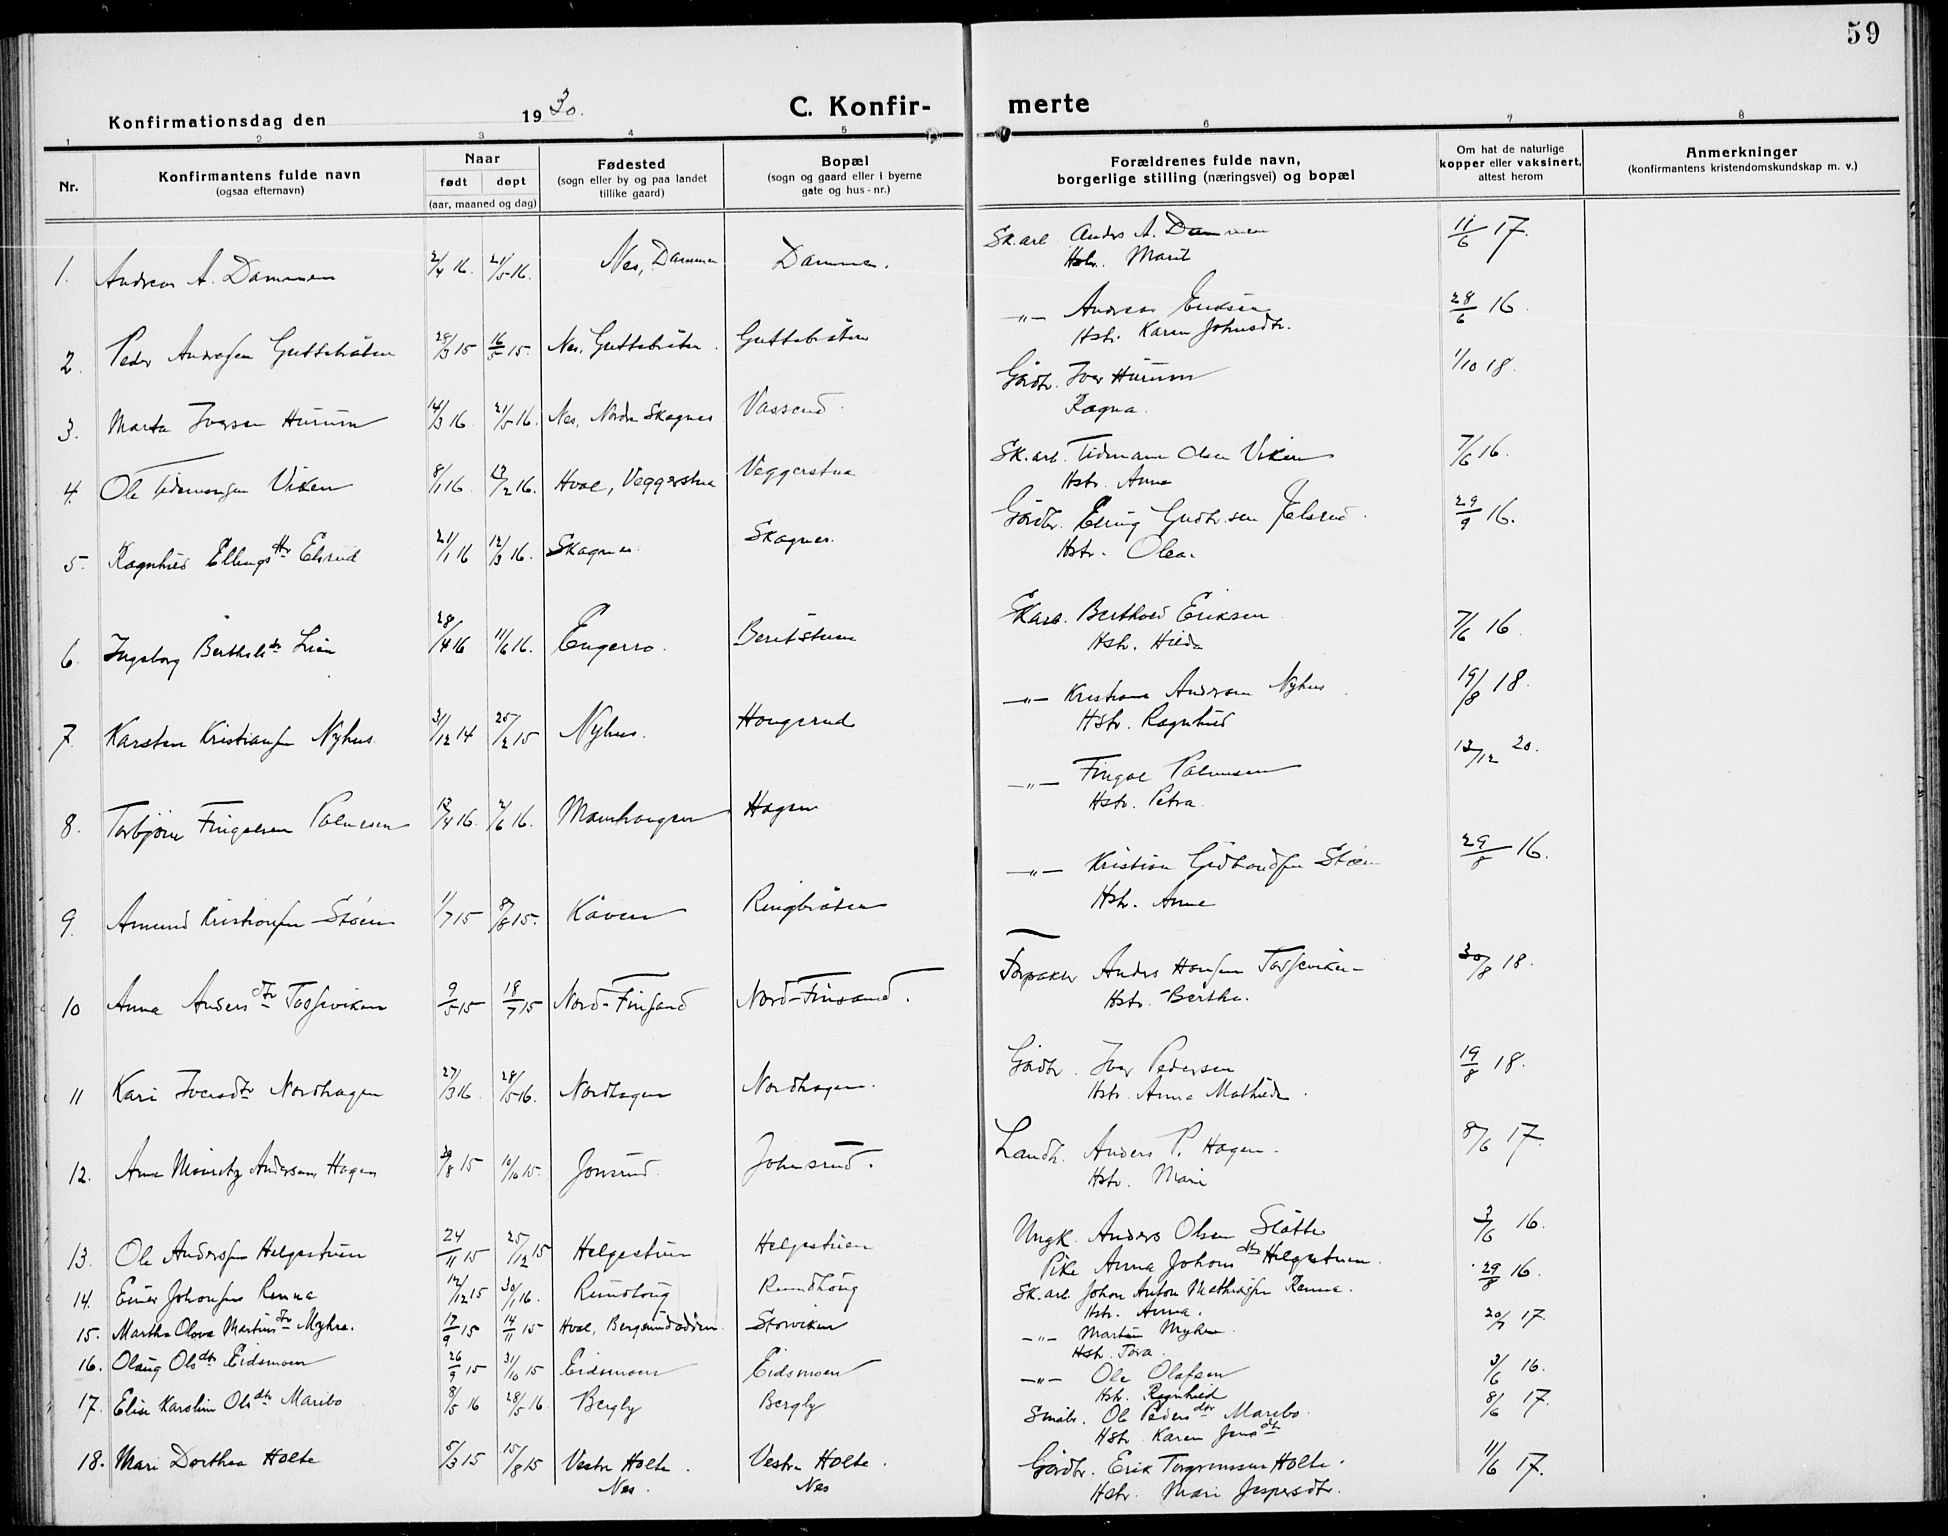 59
Konfirmationsdag den 1930.
C. Konfir-merte
1 2 3 4 5 6 7 8
Nr.
Konfirmantens fulde navn
(ogsaa efternavn)
Naar
født døpt
(aar, maaned og dag)
Fødested
(sogn eller by og paa landet
tillike gaard)
Bopæl
(sogn og gaard eller i byerne
gate og hus-nr.)
Forældrenes fulde navn,
borgerlige stilling (næringsvei) og bopæl
Om hat de naturlige
kopper eller vaksinert,
attest herom
Anmerkninger
(konfirmantens kristendomskundskap m. v.)
1. Andreas A. Dammen 2/4 16 21/5 16. Nes, Dammen Dammen. Sk.arb. Anders A. Dammen 11/6 17.
Hstr. Marit
2. Peder Andreassen Guttebråten 28/3 15 16/5 15. Nes, Guttebråten. Guttebråten -"- Andreas Eriksen 28/6 16.
Hstr. Karen Johnsdtr.
3. Marta Iversen Hurum 14/3 16 21/5 16. Nes, Nordre Skagnes Vassend. Gårdbr. Iver Hurum 1/10 18.
Ragna.
4. Ole Tidemansen Viken 8/1 16 27/2 16. Hval, Veggerstua Veggerstua Sk.arb. Tidemann Olsen Viken 7/6 16.
Hstr. Anna
5. Ragnhild Ellings dtr Elsrud 21/1 16 12/3 16. Skagnes. Skagnes. Gårdbr. Elling Gudbr.sen Elsrud. 29/9 16.
Hstr. Olea.
6. Ingeborg Berthols dtr Lien 28/4 16 11/6 16. Engerro. Beritstuen Sk.arb. Berthold Eriksen 7/6 16.
Hstr. Hilda
7. Karsten Kristiansen Nyhus 31/12 14 25/2 15 Nyhus. Haugerud -"- Kristian Andersen Nyhus 19/8 18.
Hstr. Ragnhild
8. Torbjørn Fingalsen Palmesen 12/4 16. 2/6 16. Hagen -"- Fingal Palmesen 12/12 20.
Hstr. Petra.
9. Amund Kristiansen Støen 11/7 15 8/8 15. Kåven Ringbråten -"- Kristian Gudbrandsen Støen 29/8 16.
Hstr. Anne
10 Anna Anders dtr Tosseviken 9/5 15 18/7 15 Nord-Finsand Nord-Finsand. Forpakter Anders Hansen Tosseviken 30/8 18.
Hstr. Berthe.
11 Kari Iversdtr Nordhagen 27/3 16. 28/5 16. Nordhagen Nordhagen. Gårdbr. Iver Pedersen 19/8 18.
Hstr. Anna Mathilde.
12. Arne Mauritz Andersen Hagen 29/8 15 10/10 15. Jonsrud. Johnsrud. Landh. Anders P. Hagen. 8/6 17.
Hstr. Mari
13. Ole Andersen Helgestuen 24/11 15 25/12 15 Helgestuen Helgestuen Ungk. Anders Olsen Slåtto 3/6 16.
Pike Anna Johans dtr Helgestuen.
14. Einar Johansen Renna 12/12 15 30/1 16. Rundhaug Rundhaug Sk.arb. Johan Anton Mathiassen Renna. 29/8 16.
Hstr. Anna.
15. Martha Olova Martins dtr Myhre. 17/9 15 14/11 15 Hval, Bergsundodden. Storviken -"- Martin Myhre. 20/7 17.
Hstr. Tora.
16. Olaug Ols dtr Eidsmoen 26/9 15 31/10 15 Eidsmoen Eidsmoen -"- Ole Olafsen 3/6 16.
Hstr. Ragnhild
17. Elise Karoline Ols dtr Maribo 8/5 16 28/5 16 Bergly Bergly Småbr. Ole Peders Maribo. 8/6 17.
Hstr. Karen Jens dtr
18. Mari Dorthea Holte 5/3 15 15/8 15 Vestre Holte. Vestre Holte. Gårdbr. Erik Torgrimssen Holte. 11/6 17.
Nes. Nes Hstr. Mari Jespersdtr.